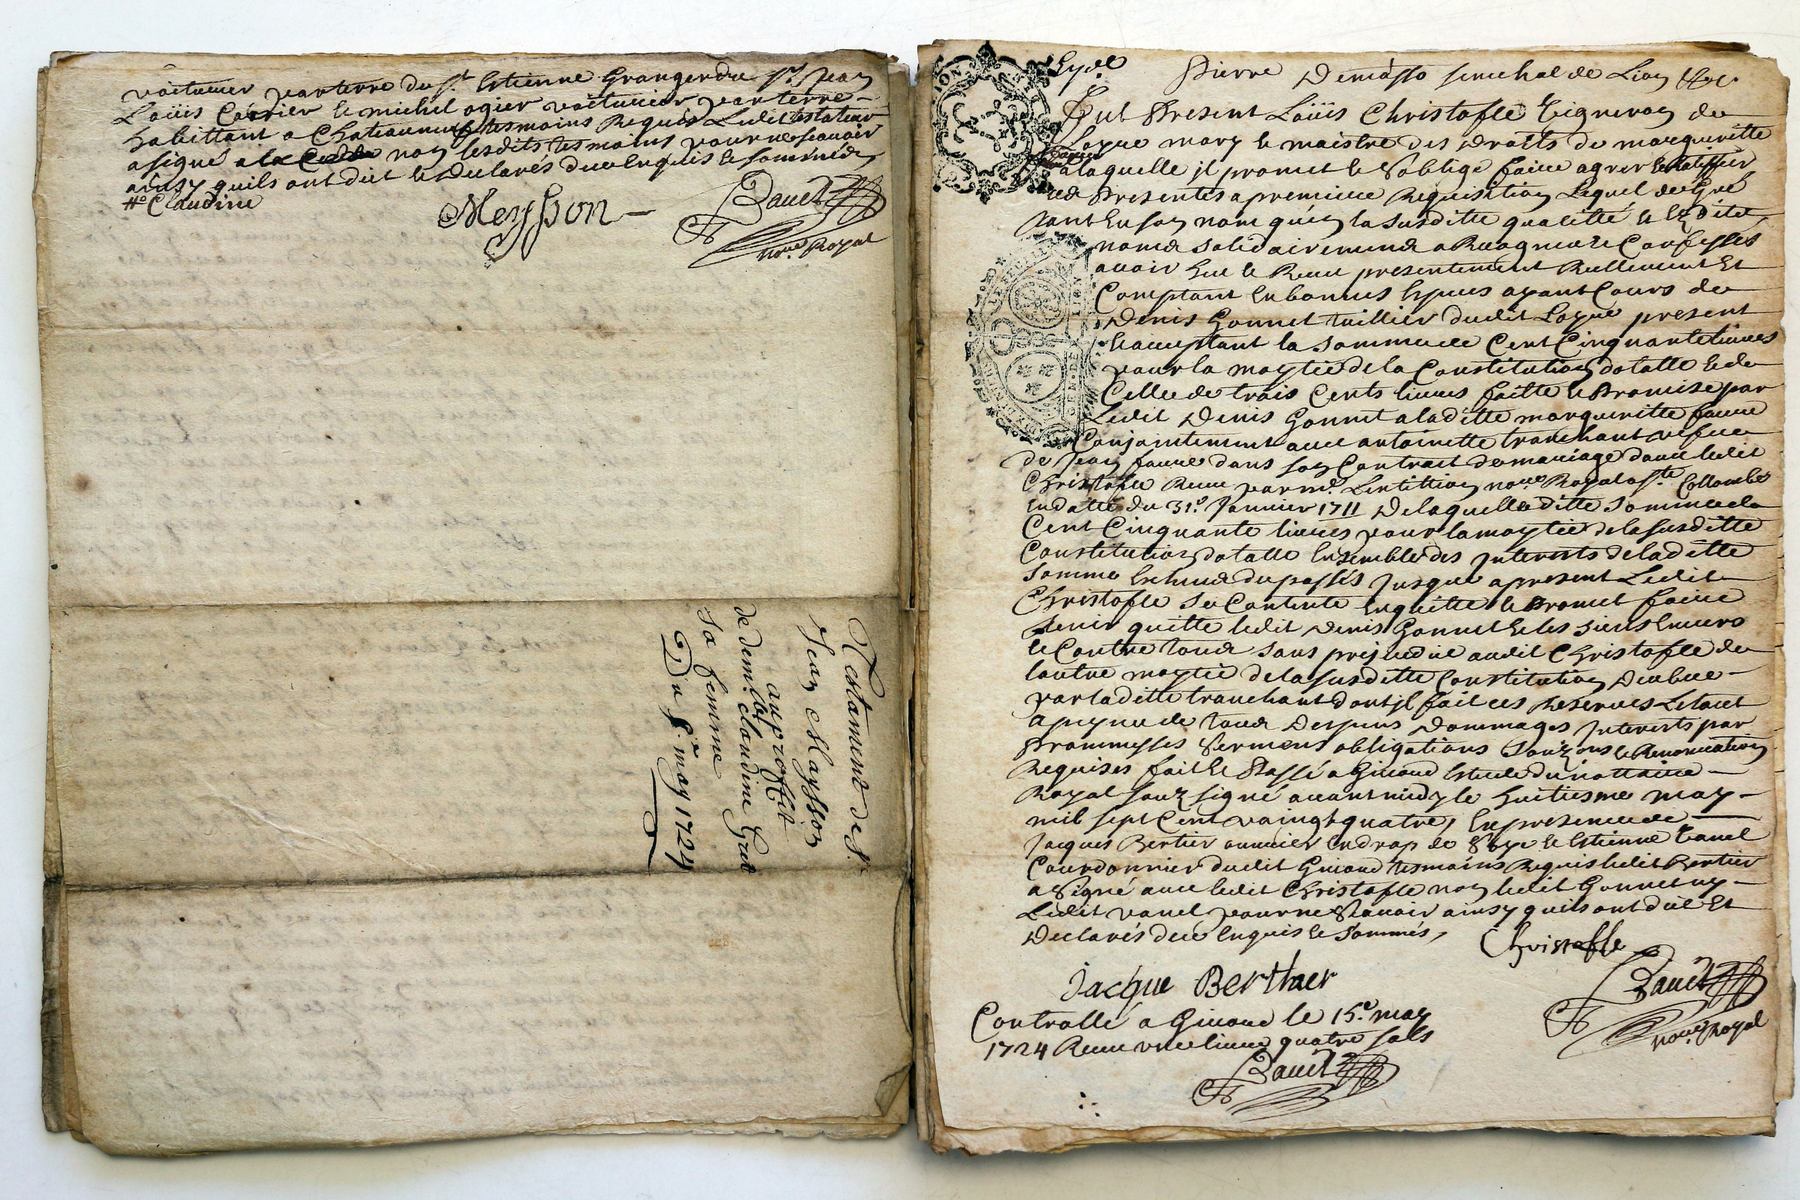 voiturier par terre du St Estienne Granger du Sr Jean
Loüis Cerrier le michel ogier voiturier par terre
habittant a Chateauneuf tesmoins Requis Ledit testateur
a signé non lesdits tesmoins pour ne sçauoir
ainsy quils ont dit et Declarés duce enquis et sommés
Claudine
Meysson
Bauet
nore Royal
Testament de Sr
Jean Maysson
au proffit
de demlle claudine Grat
sa femme
Du 8me may 1724
Pierre Demasso senechal de Lion &c
Fut Present Loüis Christofle vigneron de
Loyre mary et maistre des Droits de margueritte
faure a laquelle il promet et soblige faire agreer et ratiffier
ces Presentes a premiere Requisition Lequel de gré
tant En son nom quen la susditte qualitté et Esdits
noms solidairement a Recogneu et Confessés
auoir Eu et Receu presentement Reellement Et
Comptant En bonnes Especes ayant Cours de
Denis Gonnet tuillier dudit Loyre present
et acceptant la somme de Cent Cinquante liures
pour la moytie de la Constitution dotalle et de
Celle de trois Cents liures faitte et Promise par
Ledit Denis Gonnet a laditte margueritte faure
Conjointement auec antoinette tranchant vefue
de Jean faure dans son Contrait de mariage dauec ledit
Christofle Receu par me nore Royal a Ste Collombe
En datte du 31e Januier 1711 De laquelle ditte somme de
Cent Cinquante liures pour la moytie de la susditte
Constitution dotalle Ensemble des Interests de laditte
somme Escheus du passés Jusque a present Ledit
Christofle se Contente En quitte et Promet faire
tenir quitte ledit Denis Gonnet et les siens Enuers
et Contre tous sans prejudice audit Christofle de
lautre moytie de la susditte Constitution Deubue
par laditte tranchant dont il fait ces Reserues Le tout
a peyne de tous Despens Dommages Interests par
Prommesses serment obligations et Renonciation
Requises fait et Passé a Giuord Estude du nottaire
Royal souz signé auant midy le huitiesme may
mil sept Cent vaingt quatre, En presence de
Jacques Bertier ouurier En drap de soye et Estienne vanel
Courdonnier dudit Giuord tesmoins Requis ledit Bertier
a signé auec ledit Christofle non ledit Gonnet ny
Ledit vanel pour ne sçauoir ainsy quils ont dit Et
Declarés duce enquis et sommés,
Christofle
Jacque Berthier
Bauet
nore Royal
Controllé a Giuord le 15e may
1724 Receu vne liure quatre sols
Bauet